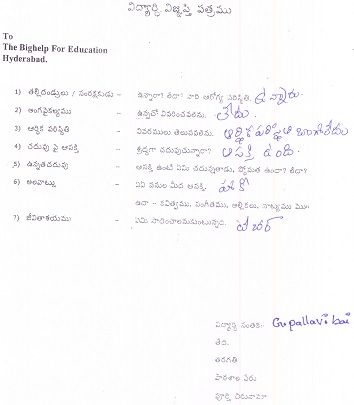 విద్యార్థి విజ్ఞప్తి పత్రము
To
The Bighelp For Education
Hyderabad.
1) తల్లిదండ్రులు / సంరక్షకుడు - ఉన్నారా? లేదా? వారి ఆరోగ్య పరిస్థితి. ఉన్నారు.
2) అంగవైకల్యము - ఉన్నచో వివరించవలెను. లేదు.
3) ఆర్థిక పరిస్థితి - వివరములు తెలుపవలెను. ఆర్థిక పరిస్థితి బాగాలేదు
4) చదువు పై ఆసక్తి - శ్రద్ధగా చదువుచున్నారా? ఆసక్తి ఉంది.
5) ఉన్నతచదువు - ఆసక్తి ఉంటే ఏమి చదువున్నాడు, స్తోమత ఉందా? లేదా?
6) అలవాట్లు - ఏఏ పనుల మీద ఆసక్తి.
ఉదా - కవిత్వము, సంగీతము, అల్లికలు, నాట్యము మొ॥
7) జీవితాశయము - ఏమి సాధించాలనుకుంటున్నది. టీచర్
విద్యార్థి సంతకం- G.pallavi bai
తేది.
తరగతి
పాఠశాల పేరు
పూర్తి చిరునామా